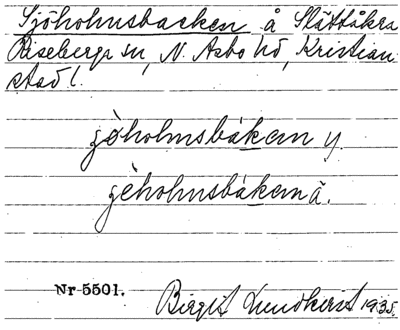 Sjöholmsbacken å Slättåkra
Riseberga sn, N. Åsbo hd, Kristian-
stad l.
jøholmsbákɛn y.
jèholmsbákɛn ä.
Nr 5501.
Birgit Lundkvist 1935.